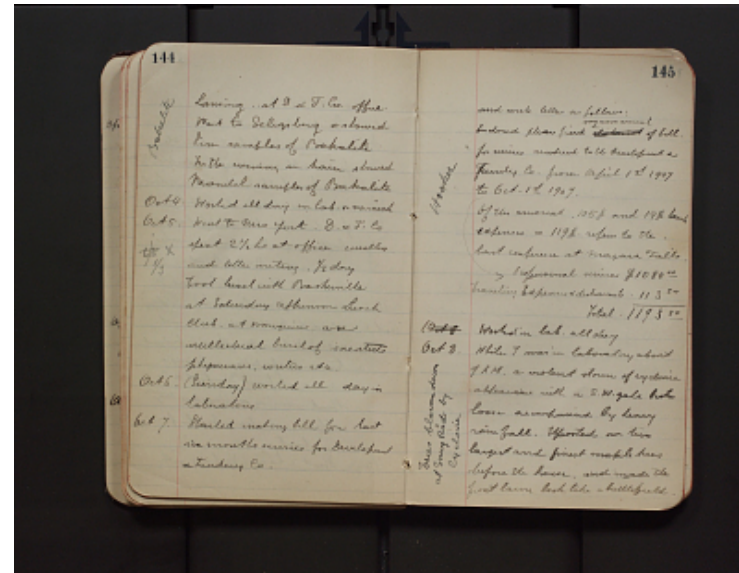 144
Bakelite
Lansing. at D & T. Co. office
Went to Seligsberg & showed
him samples of Backalite
In the evening in train showed
Mandel samples of Backalite
Oct 4 Worked all day in lab. as usual
Oct 5 Went to New York. D. & T. Co
spent 2½ hs at office
and letter writing. ½ day
Took lunch with Baskerville
at Saturday afternoon Lunch
Club. at
intellectual bunch of
physicians, writers etc.
Oct 6 (Sunday) worked all day in
laboratory
Oct 7. Started making bill for last
six months services for Developmt
& Funding Co.
145
Hooker
and wrote letter as follows:
Enclosed please find of bill
for services rendered to the Development &
Funding Co. from April 1st 1907
to Oct. 1st 1907.
Of this amount. and
expenses on 119 refer to the
last conference at Niagara Falls.
Professional services $1080.00
Traveling Expenses & disbursmts. 113.50
Total. 1193.50
Worked in lab. all day
Oct 8. While I was in laboratory about
P.M. a violent storm of cyclonic
appearance with a S.W. gale broke
loose accompanied by heavy
rain fall. Uprooted our two
largest and finest maple trees
before the house. and made the
front lawn look like a battlefield.
Trees blown down
at Snug Rock by
Cyclone